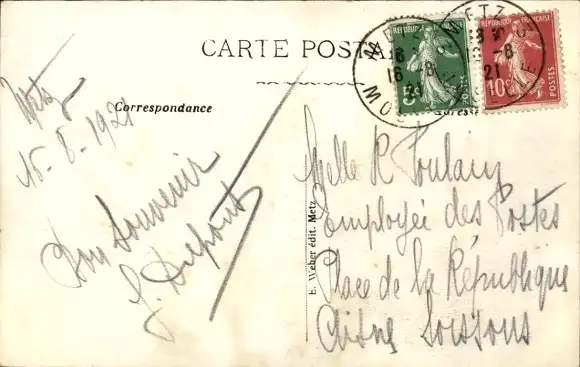 CARTE POSTALE
Correspondance
Adresse
RÉPUBLIQUE FRANÇAISE
5c
POSTES
RÉPUBLIQUE FRANÇAISE
10c
POSTES
METZ
16-8
21
MOSELLE
Metz
15-8-1921
Bon Souvenir
J. Dupont
E. Weber édit. Metz
Melle R Poulain
Employée des Postes
Place de la République
Aisne Soissons